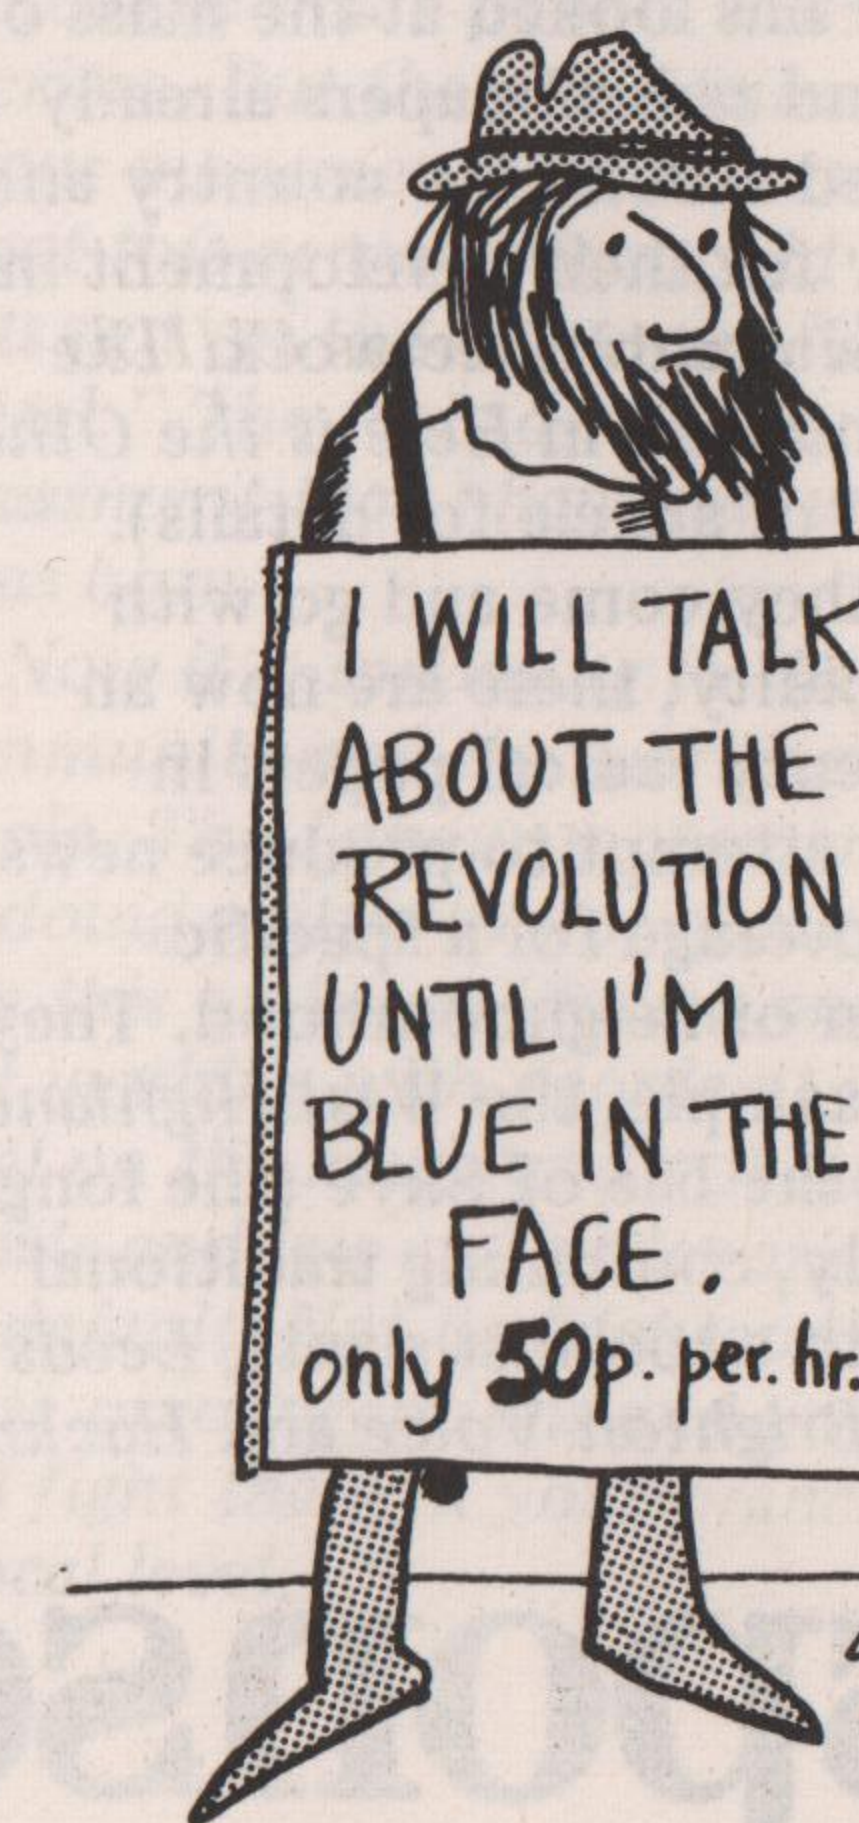 I WILL TALK
ABOUT THE
REVOLUTION
UNTIL I'M
BLUE IN THE
FACE.
only 50p. per. hr.